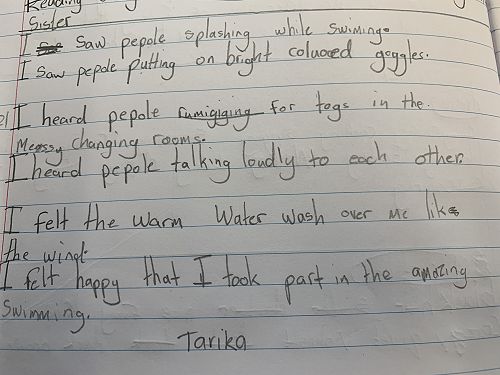 Reading
Sister
I saw pepole splashing while swiming.
I saw pepole putting on bright coluored goggles.
I heard pepole rumigiging for togs in the
Meossy changing rooms.
I heard pepole talking loudly to each other.
I felt the warm water wash over me like
the wind.
I felt happy that I took part in the amazing
swimming.
Tarika